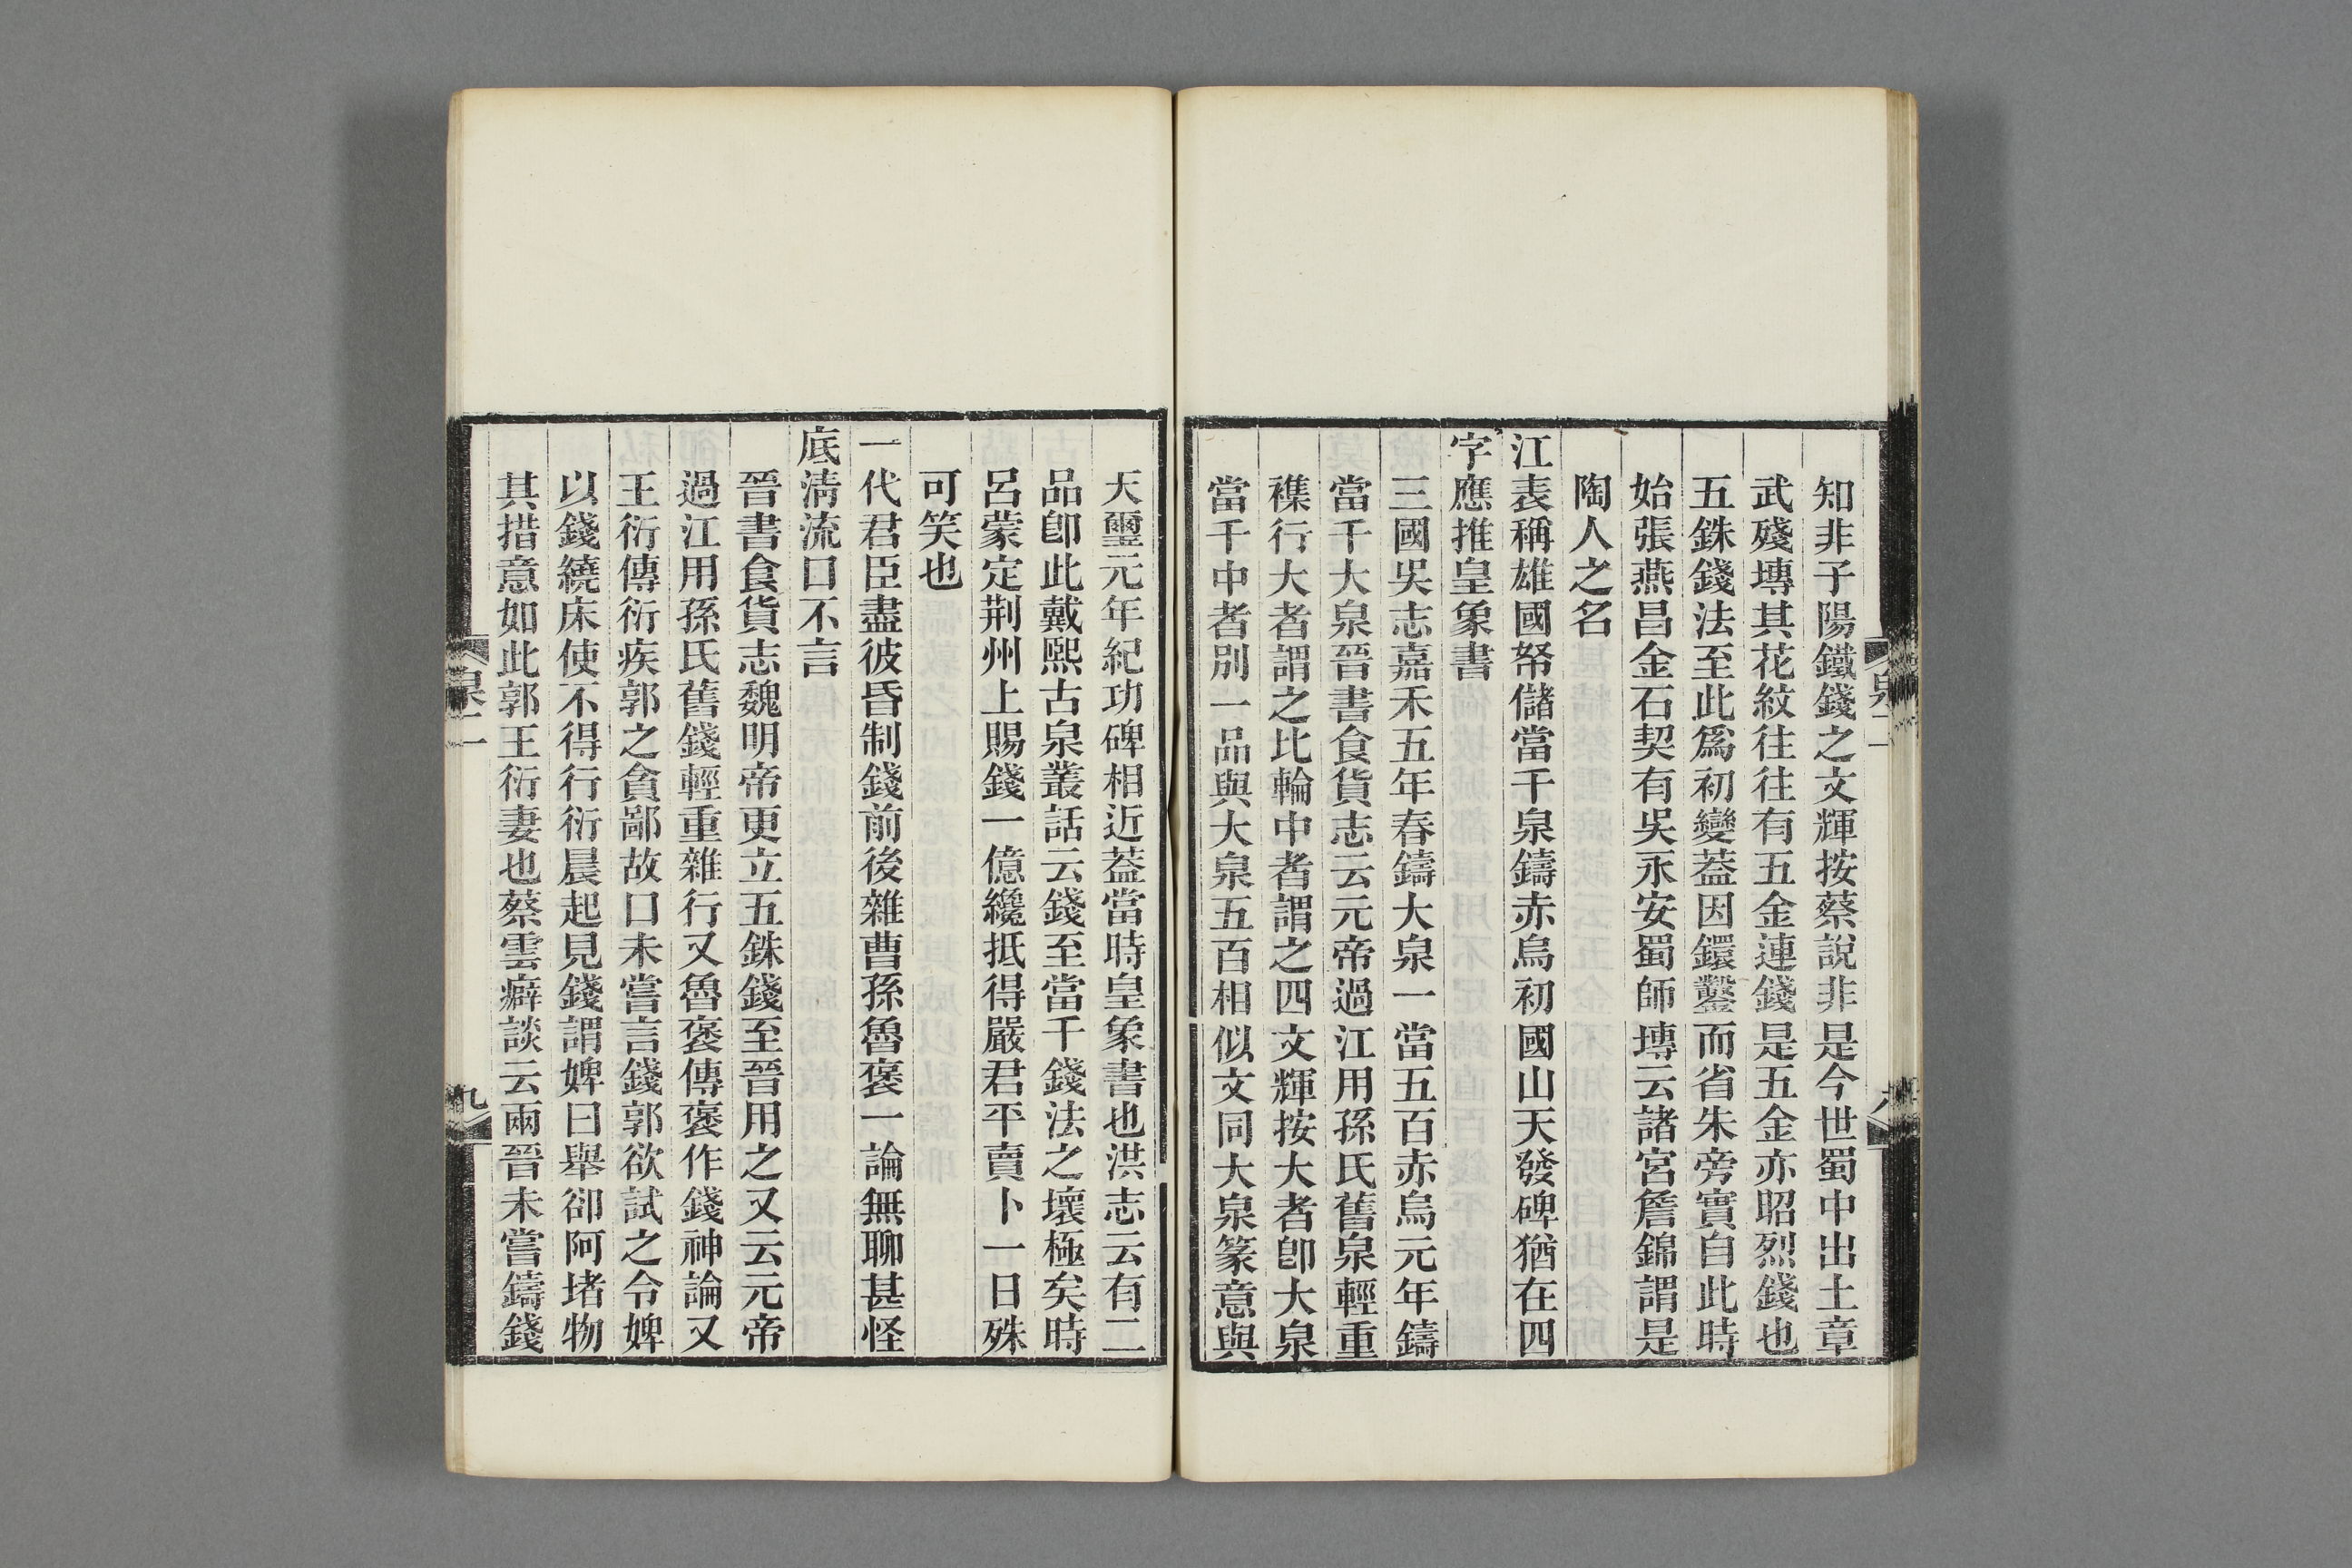 知非子陽鐵錢之文輝按蔡說非是今世蜀中出土章
武殘塼其花紋往往有五金連錢是五金亦昭烈錢也
五銖錢法至此爲初變葢因鐶鑿而省朱旁實自此時
始張燕昌金石契有吳永安蜀師塼云諸宮詹錦謂是
陶人之名
江表稱雄國帑儲當千泉鑄赤烏初國山天發碑猶在四
字應推皇象書
三國吳志嘉禾五年春鑄大泉一當五百赤烏元年鑄
當千大泉晉書食貨志云元帝過江用孫氏舊泉輕重
襍行大者謂之比輪中者謂之四文輝按大者卽大泉
當千中者別一品與大泉五百相似文同大泉篆意與
泉二
天璽元年紀功碑相近葢當時皇象書也洪志云有二
品卽此戴熙古泉叢話云錢至當千錢法之壞極矣時
呂蒙定荆州上賜錢一億纔抵得嚴君平賣卜一日殊
可笑也
一代君臣盡彼昏制錢前後雜曹孫魯褒一論無聊甚怪
底淸流口不言
晉書食貨志魏明帝更立五銖錢至晉用之又云元帝
過江用孫氏舊錢輕重雜行又魯褒傳褒作錢神論又
王衍傳衍疾郭之貪鄙故口未嘗言錢郭欲試之令婢
以錢繞床使不得行衍晨起見錢謂婢曰舉卻阿堵物
其措意如此郭王衍妻也蔡雲癖談云兩晉未嘗鑄錢
泉二
九